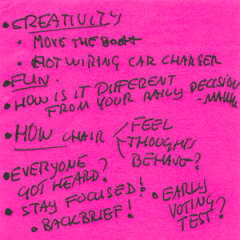 • CREATIVITY
• MOVE THE BOAT
• HOT WIRING CAR CHARGER
• FUN
• HOW IS IT DIFFERENT
FROM YOUR DAILY DECISION
-MAKING
• HOW CHAIR < FEEL
THOUGHTS
BEHAVE?
• EVERYONE
GOT HEARD?
• STAY FOCUSED!
• BACKBRIEF!
• EARLY
VOTING
TEST?